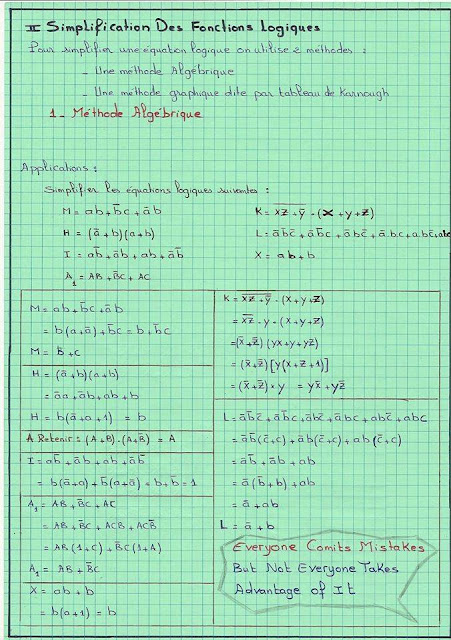 II Simplification Des Fonctions Logiques
Pour simplifier une équation logique on utilise 2 méthodes :
- Une méthode Algébrique
- Une méthode graphique dite par tableau de Karnough
1_ Méthode Algébrique
Applications :
Simplifier les équations logiques suivantes :
M = ab + b̄c + āb
H = (ā + b)(a + b)
I = ab̄ + āb + ab + āb̄
A₁ = AB + B̄C + AC
K = \overline{xz + ȳ} · (x + y + z)
L = āb̄c̄ + āb̄c + ābc̄ + ābc + abc̄ + abc
X = ab + b
M = ab + b̄c + āb
= b(a + ā) + b̄c = b + b̄c
M = B + C
H = (ā + b)(a + b)
= āa + āb + ab + b
H = b(ā + a + 1) = b
A Retenir : (A + B) · (A + B̄) = A
I = ab̄ + āb + ab + āb̄
= b(ā + a) + b̄(a + ā) = b + b̄ = 1
A₁ = AB + B̄C + AC
= AB + B̄C + ACB + ACB̄
= AB(1 + C) + B̄C(1 + A)
A₁ = AB + B̄C
X = ab + b
= b(a + 1) = b
K = \overline{xz + ȳ} · (x + y + z)
= \overline{xz} · y · (x + y + z)
= (x̄ + z̄) (yx + y + yz)
= (x̄ + z̄) [y(x + z + 1)]
= (x̄ + z̄) × y = yx̄ + yz̄
L = āb̄c̄ + āb̄c + ābc̄ + ābc + abc̄ + abc
= āb̄(c̄ + c) + āb(c̄ + c) + ab(c̄ + c)
= āb̄ + āb + ab
= ā(b̄ + b) + ab
= ā + ab
L = ā + b
Everyone Comits Mistakes
But Not Everyone Takes
Advantage of It